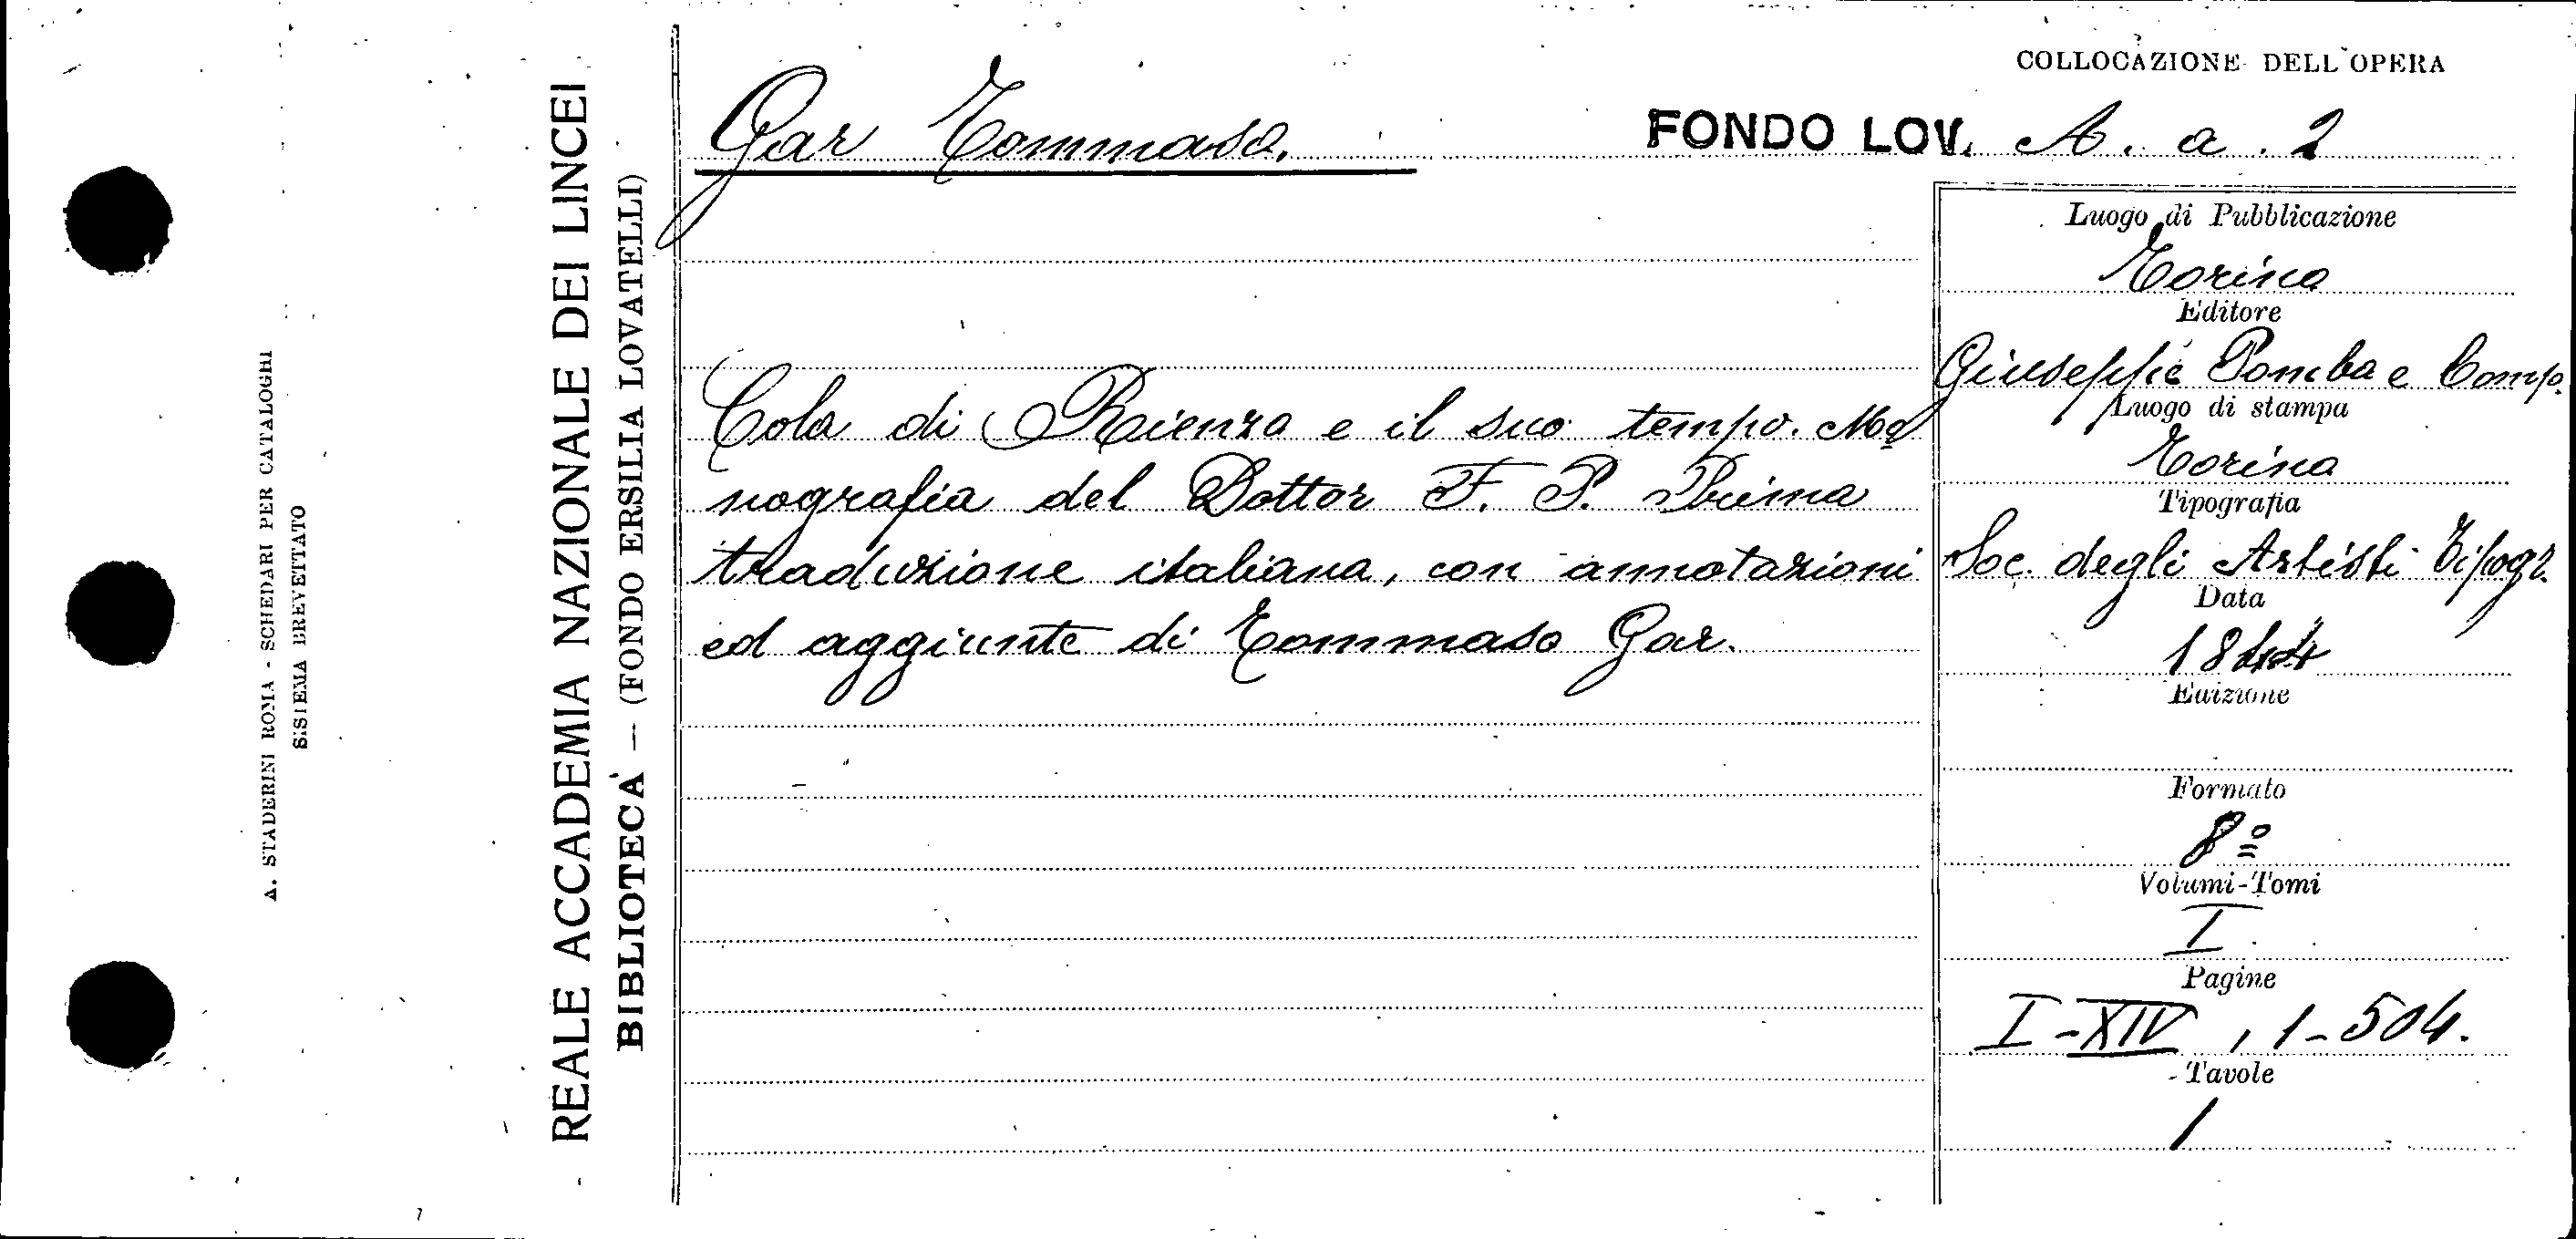 COLLOCAZIONE DELL'OPERA
Gar Tommaso.
FONDO LOV. A. a. 2
Cola di Rienzo e il suo tempo. Mo
nografia del Dottor F. P. Prima
traduzione italiana, con annotazioni
ed aggiunte di Tommaso Gar.
Luogo di Pubblicazione
Torino
Editore
Giuseppe Pomba e Comp.
Luogo di stampa
Torino
Tipografia
Soc. degli Artisti Tipogr.
Data
1844
Edizione
Formato
8º
Volumi-Tomi
I
Pagine
I-XIV, 1-504.
Tavole
/
REALE ACCADEMIA NAZIONALE DEI LINCEI
BIBLIOTECA — (FONDO ERSILIA LOVATELLI)
A. STADERINI ROMA - SCHEDARI PER CATALOGHI
SISTEMA BREVETTATO